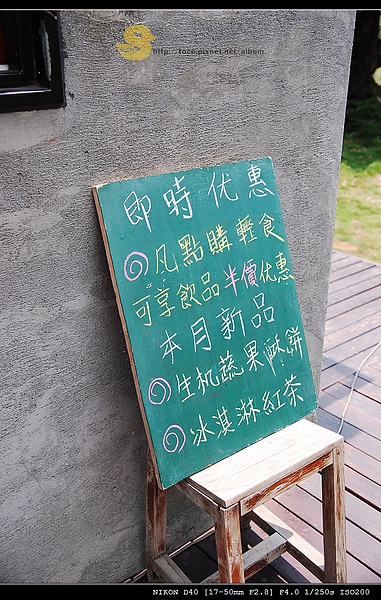 S
http://toco.pixnet.net/album
即時优惠
凡點購輕食
可享飲品半價优惠
本月新品
生机蔬果酥餅
冰淇淋紅茶
NIKON D40 [17-50mm F2.8] F4.0 1/250s ISO200